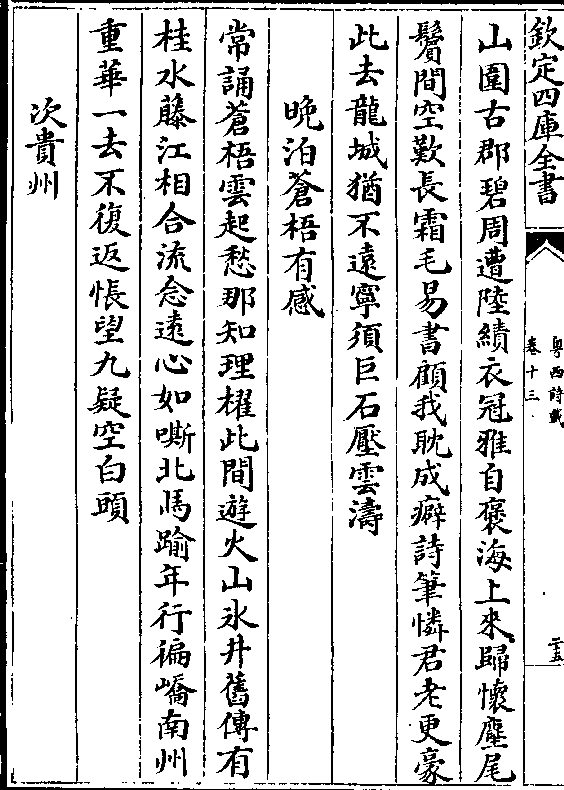 欽定四庫全書
粤西詩載
卷十三
二五
山園古郡碧周遭陸績衣冠雅自褒海上來歸懷麈尾
鬢間空歎長霜毛易書顧我耽成癖詩筆憐君老更豪
此去龍城猶不遠寧須巨石壓雲濤
晩泊蒼梧有感
常誦蒼梧雲起愁那知理櫂此間遊火山氷井舊傳有
桂水藤江相合流念遠心如嘶北馬踰年行徧嶠南州
重華一去不復返悵望九疑空白頭
次貴州